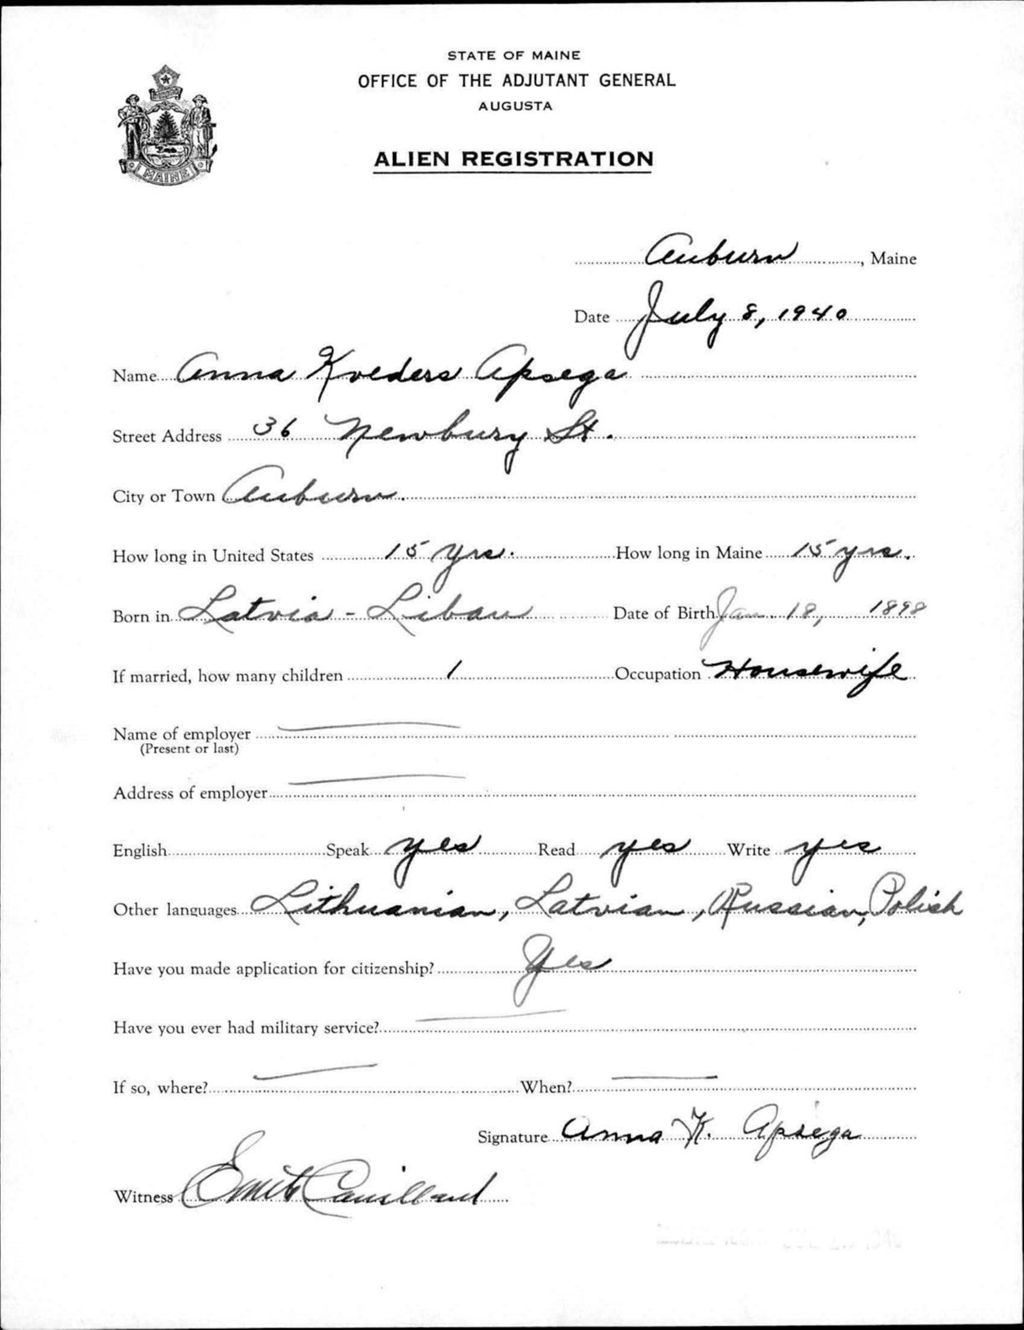 STATE OF MAINE
OFFICE OF THE ADJUTANT GENERAL
AUGUSTA
ALIEN REGISTRATION
MAINE
Auburn, Maine
Date July 8, 1940
Name Anna Kveders Apsega
Street Address 36 Newbury St.
City or Town Auburn.
How long in United States 15 yrs. How long in Maine 15 yrs.
Born in Latvia - Libau Date of Birth Jan. 18, 1898
If married, how many children 1 Occupation Housewife
Name of employer
(Present or last)
Address of employer
English Speak yes Read yes Write yes
Other languages Lithuanian, Latvian, Russian, Polish
Have you made application for citizenship? Yes
Have you ever had military service?
If so, where? When?
Signature Anna K. Apsega
Witness